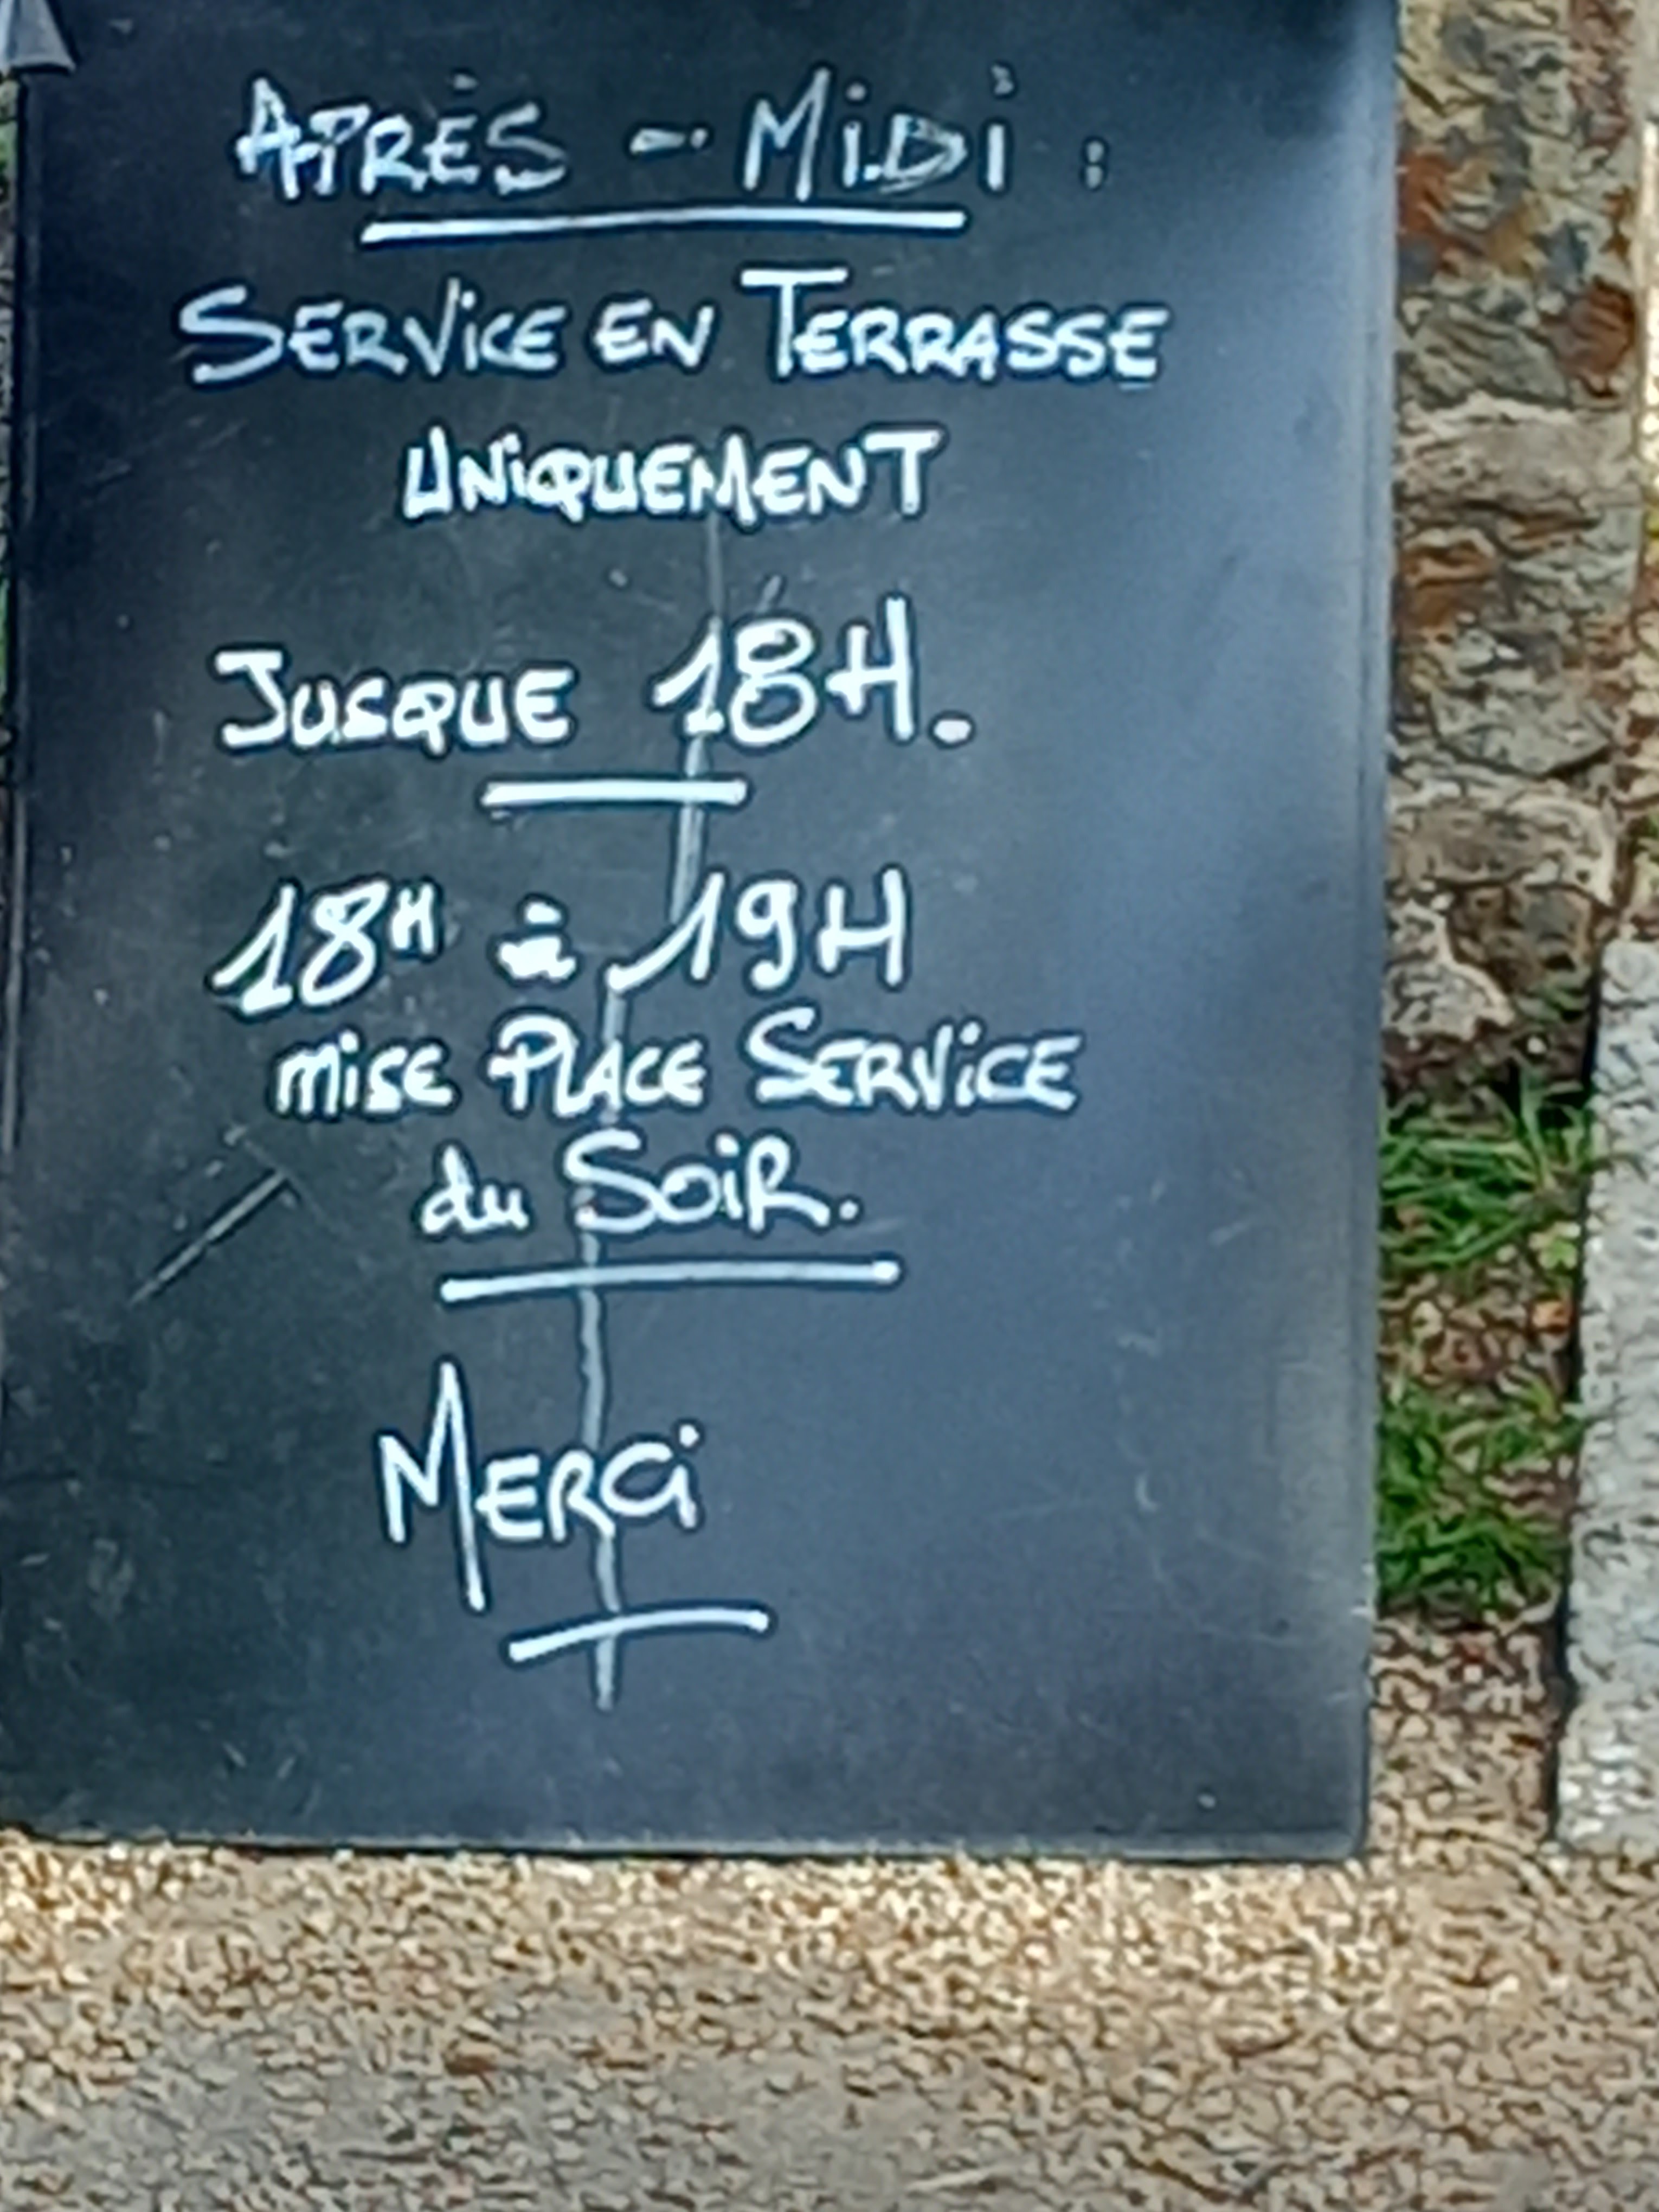 APRÈS - MiDi :
SERViCE EN TERRASSE
UNiQUEMENT
JUSQUE 18H.
18H à 19H
MiSE PLACE SERViCE
du SOiR.
MERCi